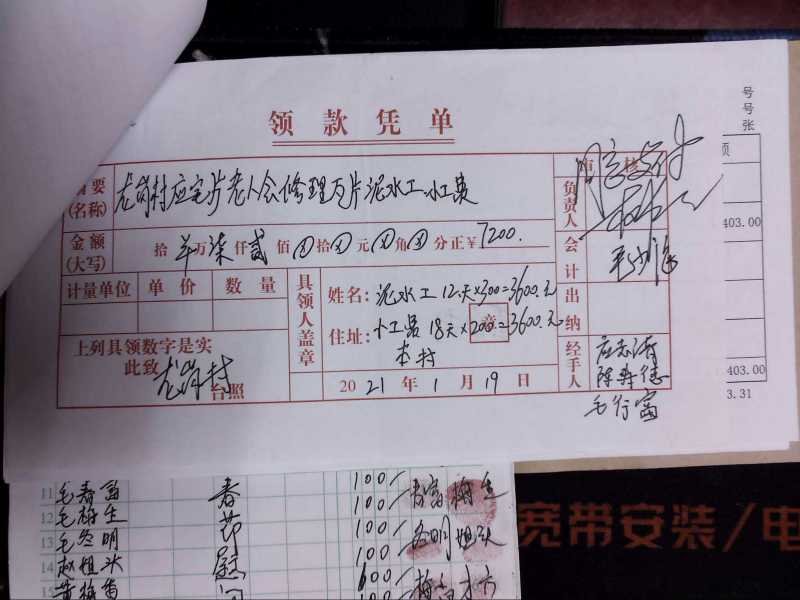 领款凭单
号
号
张
摘要
(名称)
龙岗村应宅片老人会修理瓦片泥水工小工费
审核
同意支付
负责人
金额
(大写)
拾 万 柒 仟 贰 佰 拾 元 角 分 正 ¥ 7200.
403.00
会计
计量单位 单价 数量
具领人盖章
姓名: 泥水工 12天×300=3600.元
出纳
住址: 小工员 18天×200=3600.元
章
本村
上列具领数字是实
此致
龙岗村
台照
2021年1月19日
经手人
陈寿德
毛行富
403.00
3.31
11 毛春富 春 100/ 春富 梅生
12 毛梅生 节 100/
13 毛岩明 慰 100/ 岩明 祖头
14 赵祖头 问 100/
15 黄梅香 600/ 梅香
宽带安装/电